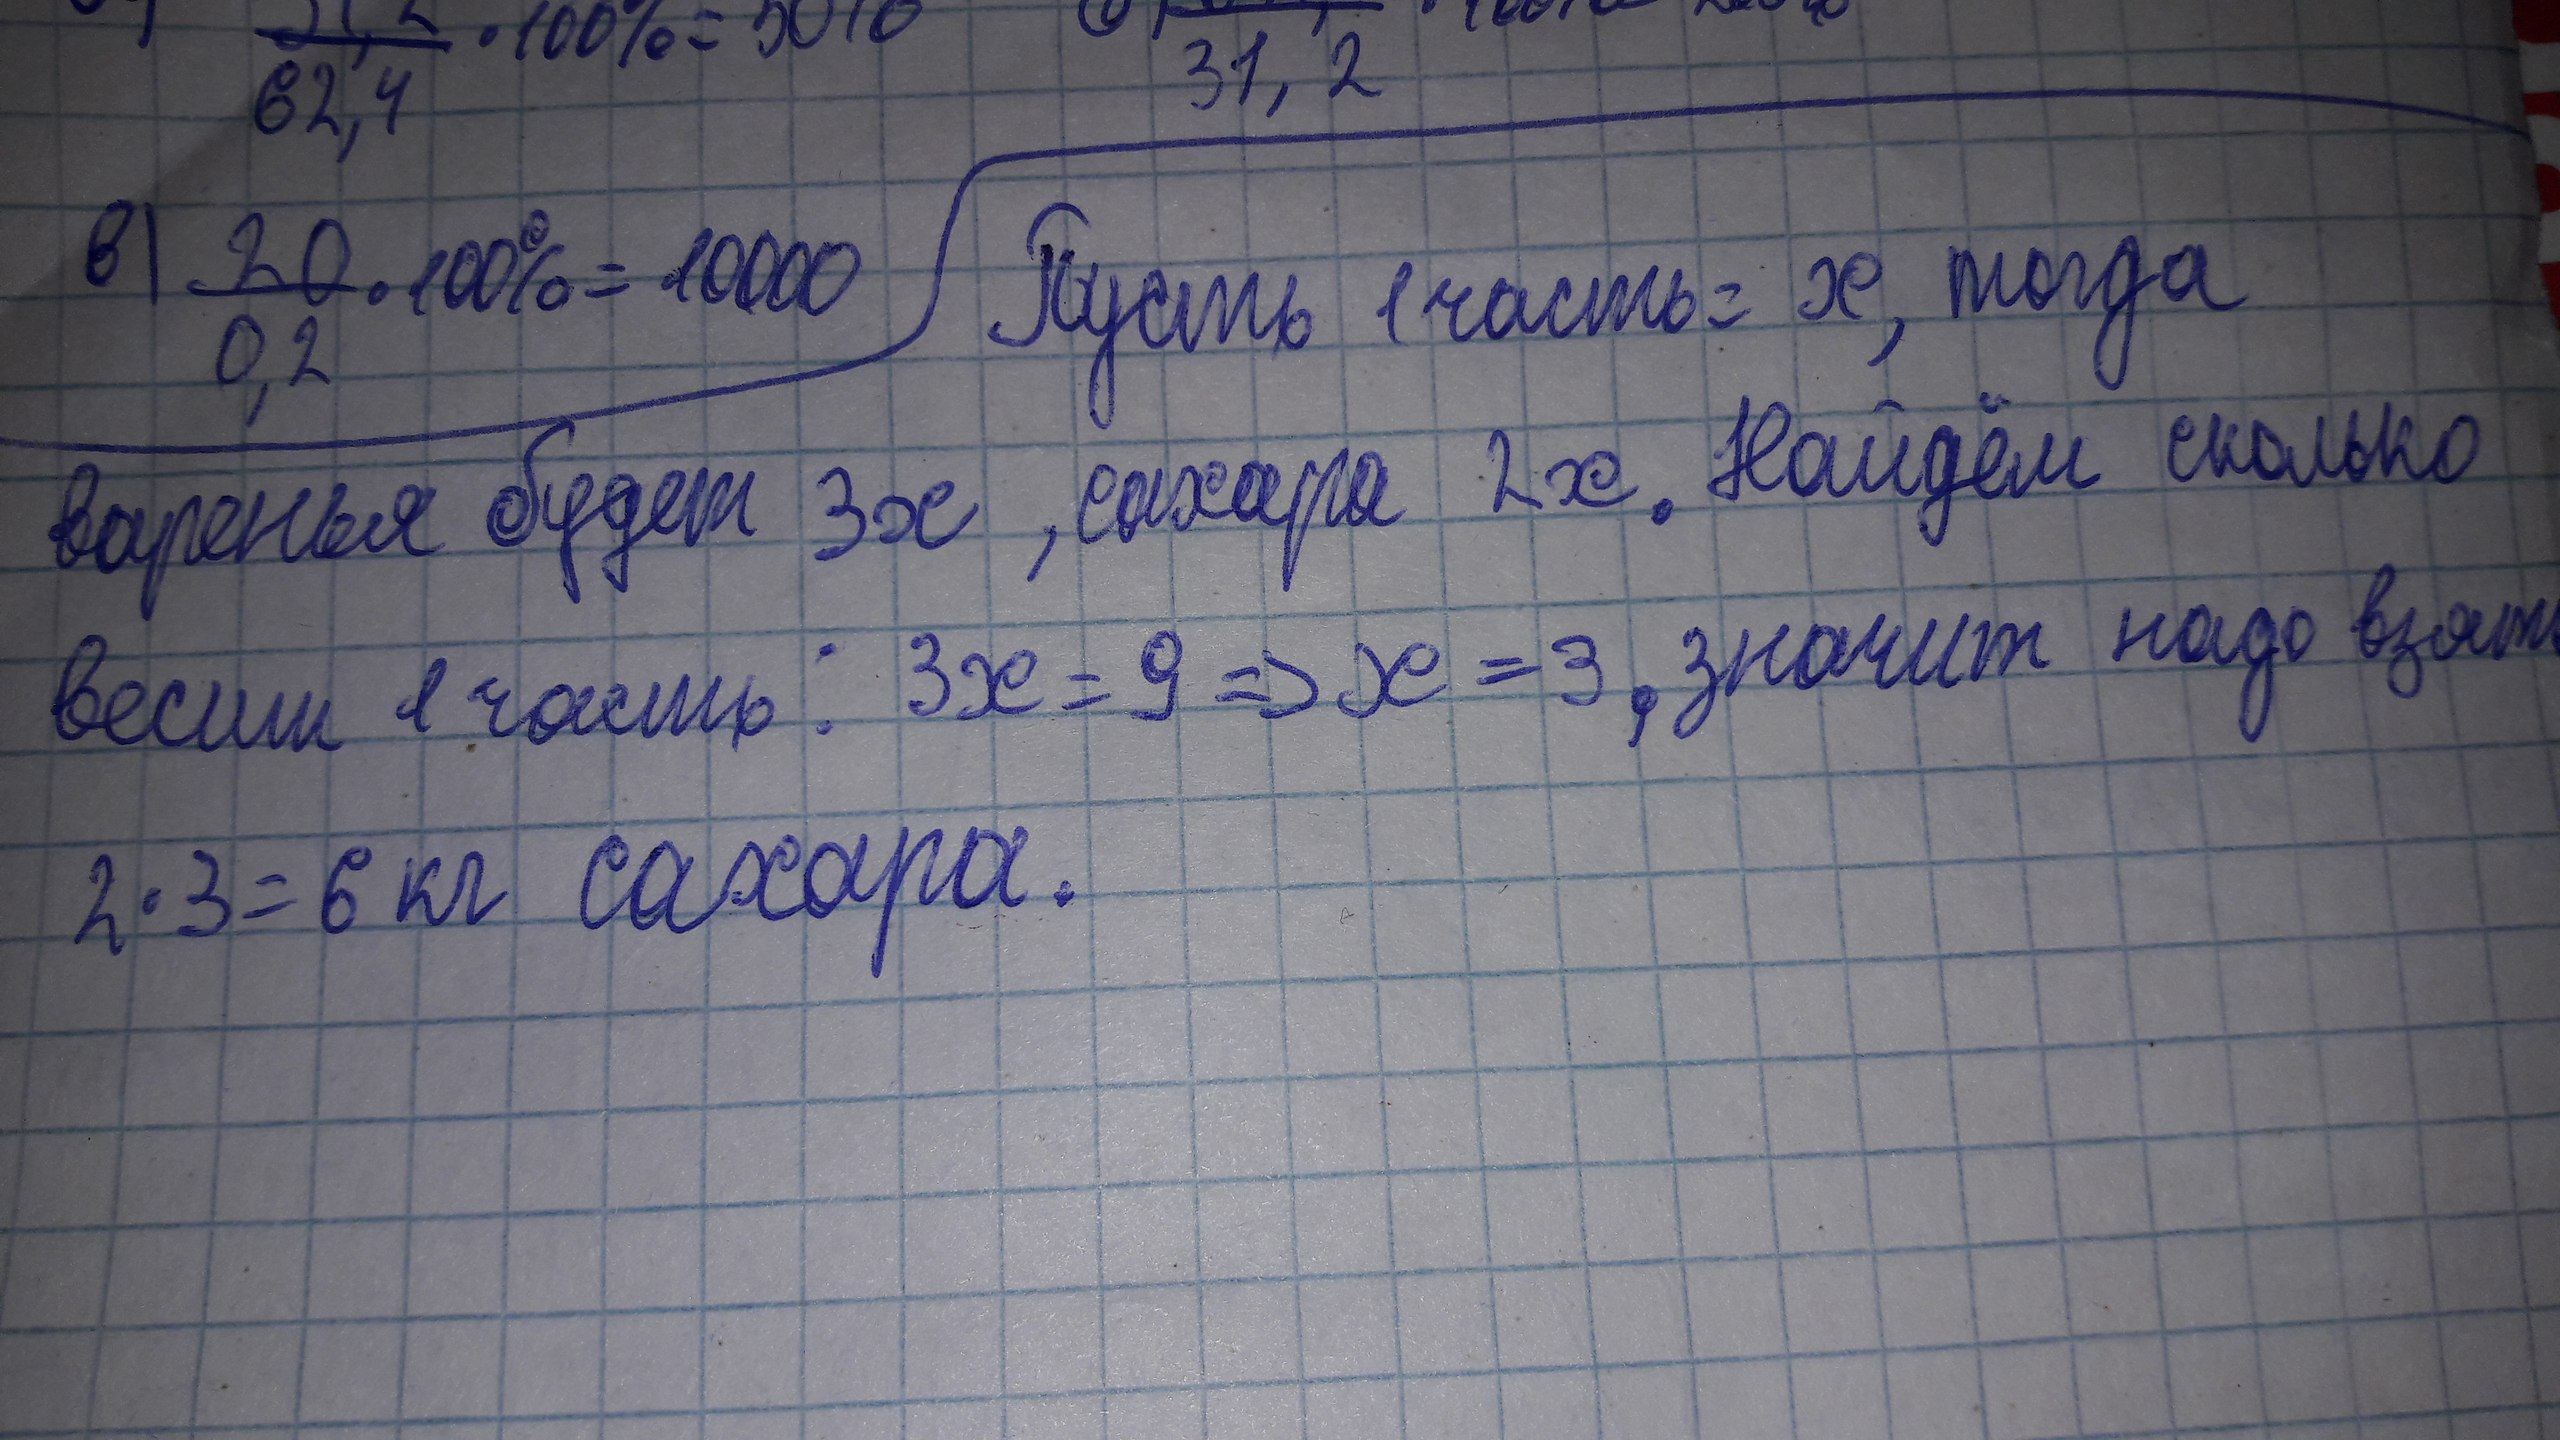 62,4 · 100% = 50%
31,2
в) 20/0,2 · 100% = 10000
Пусть 1 часть = x, тогда
варенья будет 3x, сахара 2x. Найдём сколько
весит 1 часть: 3x = 9 => x = 3, значит надо взять
2 · 3 = 6 кг сахара.